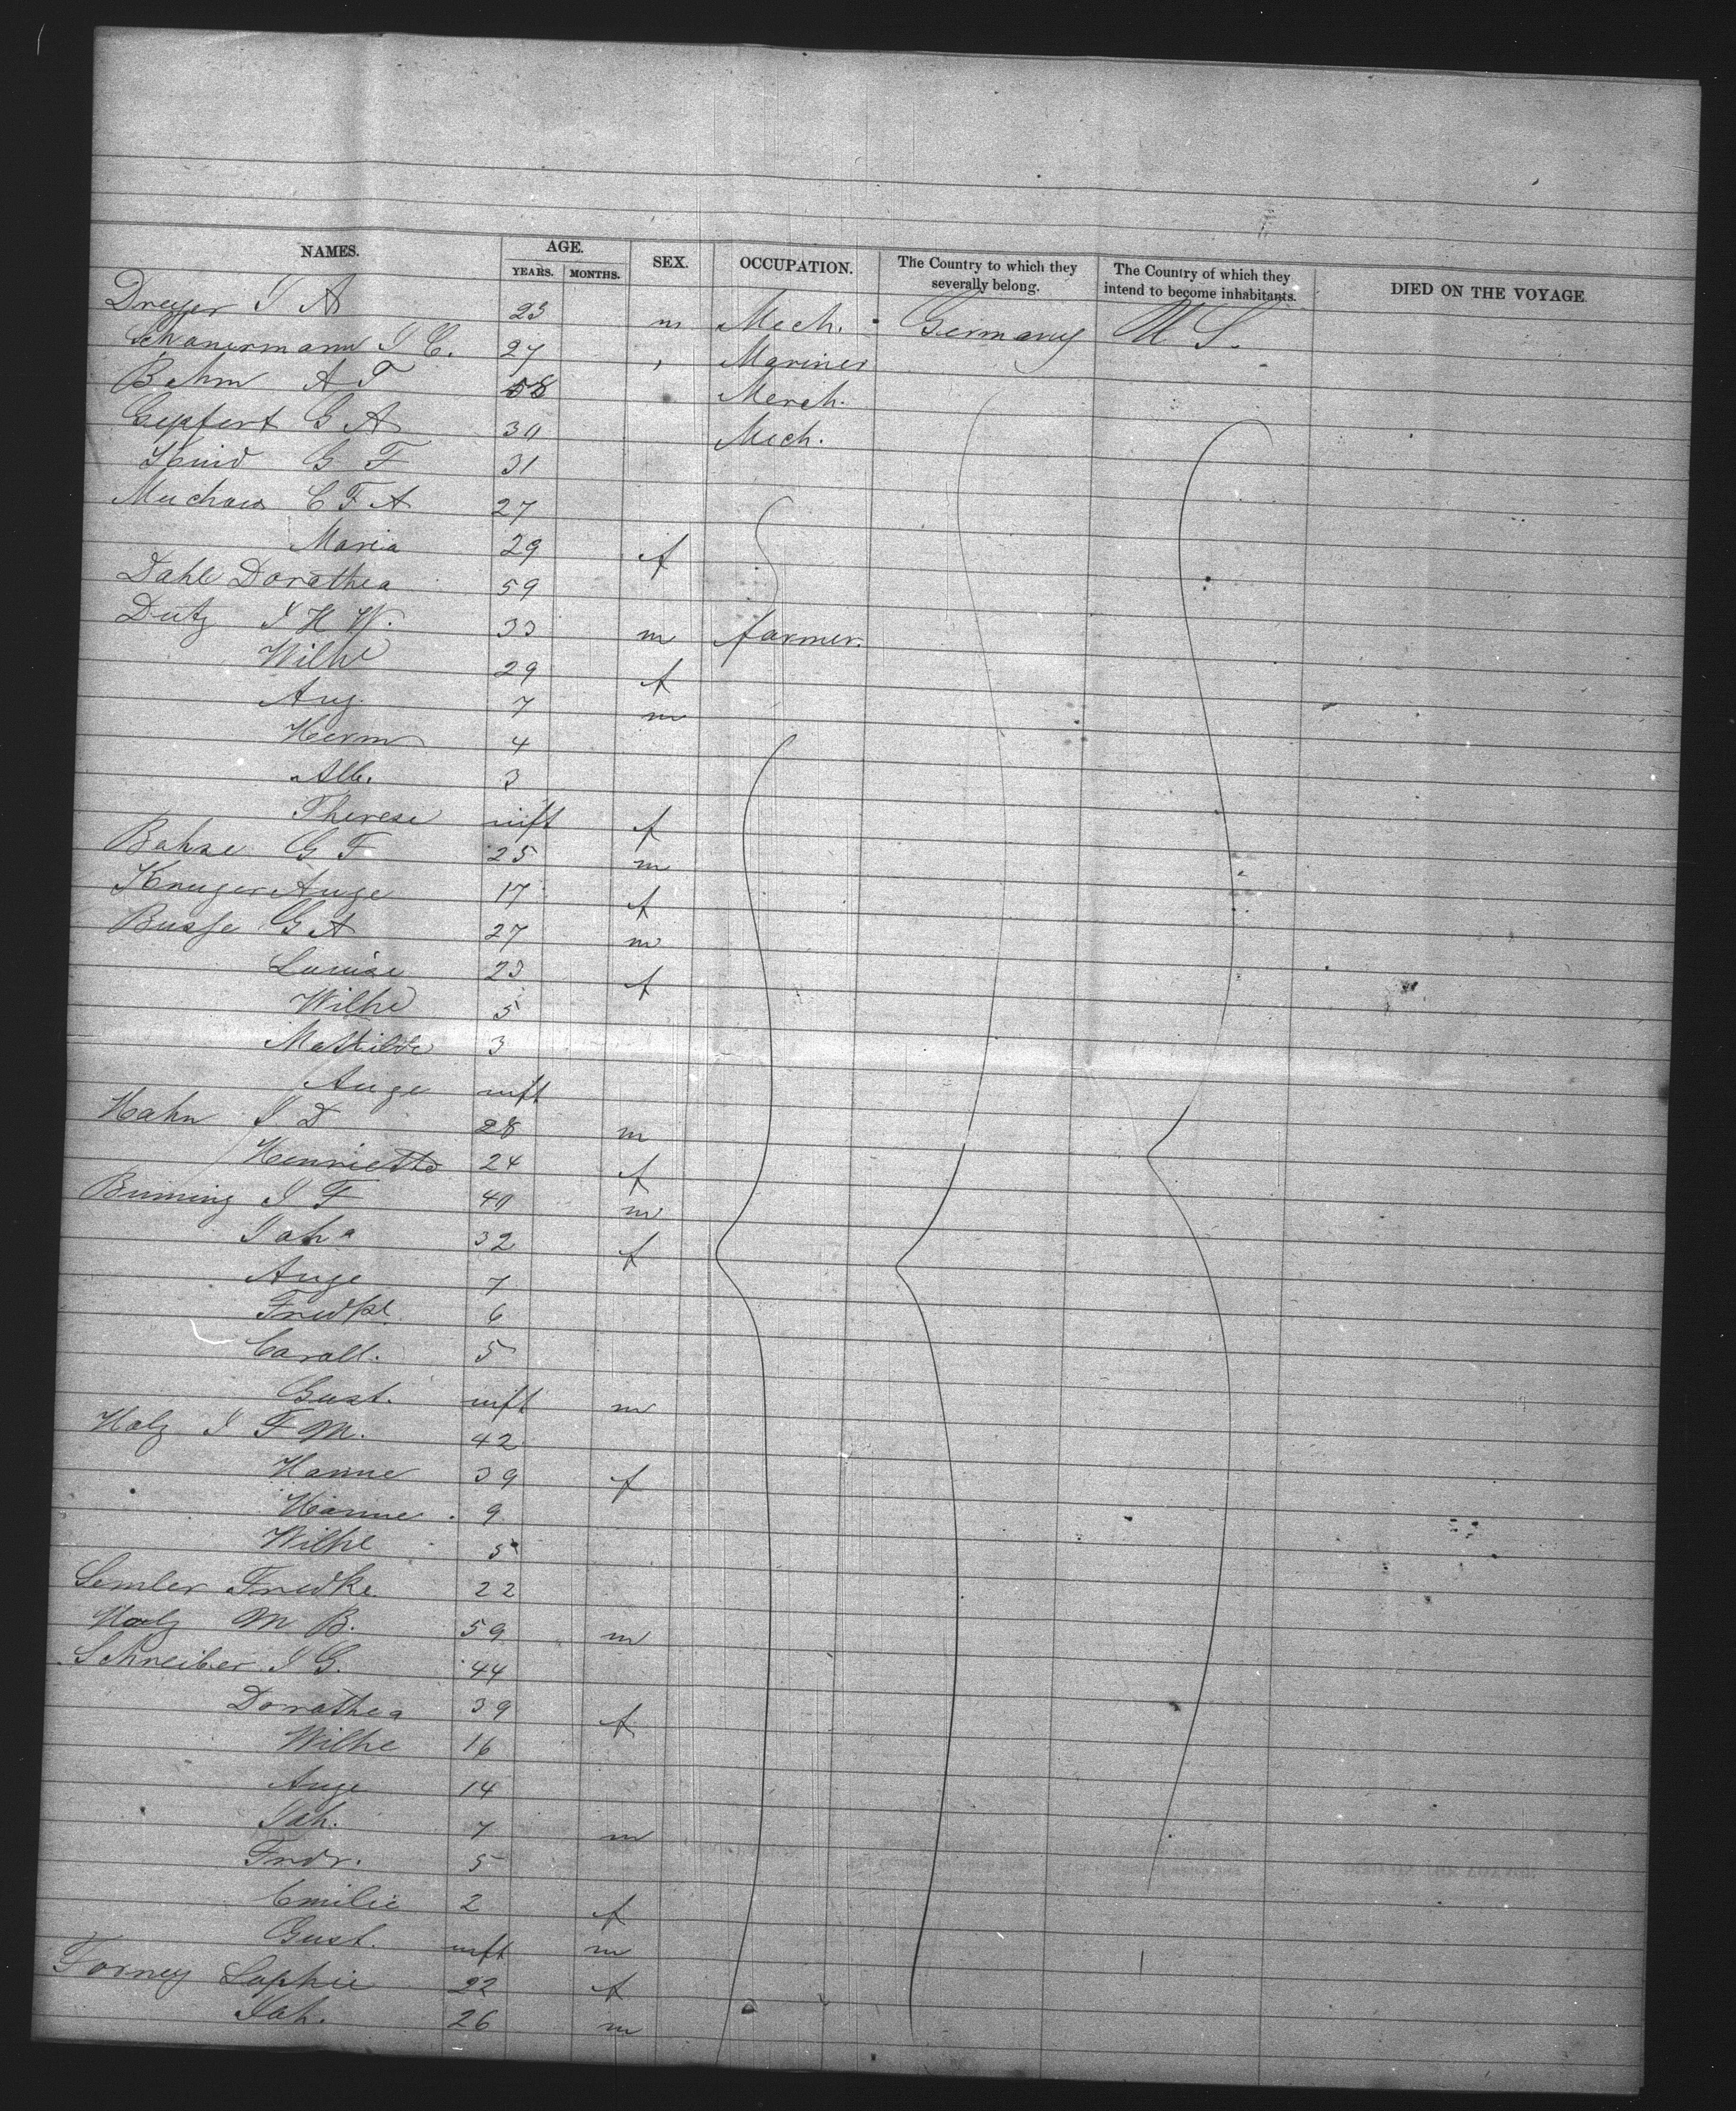 NAMES. AGE. YEARS. MONTHS. SEX. OCCUPATION. The Country to which they severally belong. The Country of which they intend to become inhabitants. DIED ON THE VOYAGE
Dreyer J A 23 m Mech. Germany U S.
Schanermann J C. 27 " Mariner
Bahm A F 58 Merch.
Gepfert G A 30 Mech.
G F 31
Muchow C F A 27
Maria 29 f
Dahl Dorathea 59
Dutz J H W. 33 m farmer.
Wilhe 29 f
Aug. 7 m
Herm 4
Alb. 3
Therese inft f
Bahse G F 25 m
Kruger Auge 17 f
Busse G A 27 m
Louise 23 f
Wilhe 5
Mathilde 3
Auge inft
Hahn J D 28 m
Henrietta 24 f
Buming J F 40 m
Joha 32 f
Auge 7
Fredke 6
Caroll. 5
Gust. inft m
Holz J F M. 42
Hanne 39 f
Hanne 9
Wilhe 5
Semler Fredke 22
Holz M B. 59 m
Schreiber J G. 44
Dorrathea 39 f
Wilhe 16
Auge 14
Joh. 7 m
Fredr. 5
Emilie 2 f
Gust. inft m
Torney Sophie 22 f
Joh. 26 m